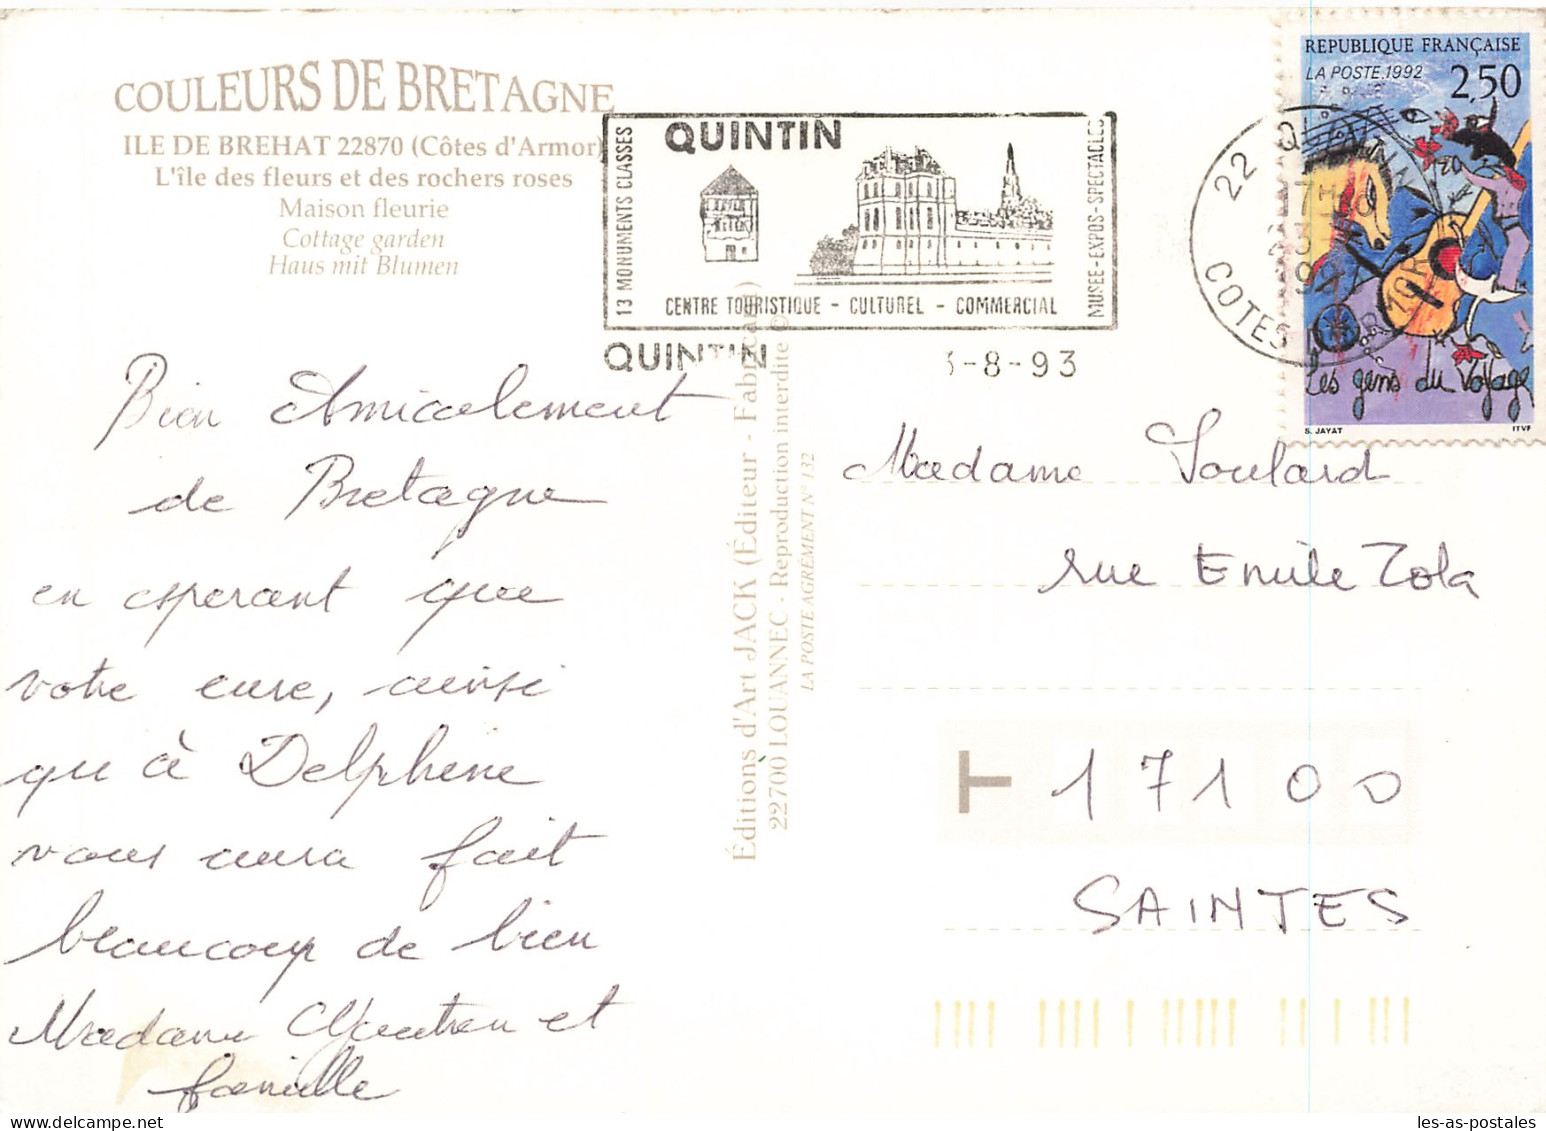 COULEURS DE BRETAGNE
ILE DE BREHAT 22870 (Côtes d'Armor)
L'île des fleurs et des rochers roses
Maison fleurie
Cottage garden
Haus mit Blumen
13 MONUMENTS CLASSES
QUINTIN
CENTRE TOURISTIQUE - CULTUREL - COMMERCIAL
MUSEE-EXPOS-SPECTACLES
QUINTIN
-8-93
22 QUINTIN
COTES D'ARMOR
REPUBLIQUE FRANÇAISE
LA POSTE 1992
2,50
Les gens du voyage
S. JAYAT
ITVF
Bien Amicalement
de Bretagne
en esperant que
votre cure, ainsi
qu'à Delphine
vous aura fait
beaucoup de bien
Madame et
famille
Éditions d'Art JACK (Éditeur - Fabricant)
22700 LOUANNEC - Reproduction interdite ©
LA POSTE AGRÉMENT N° 132
Madame Soulard
rue Emile Zola
T 17100
SAINTES
les-as-postales